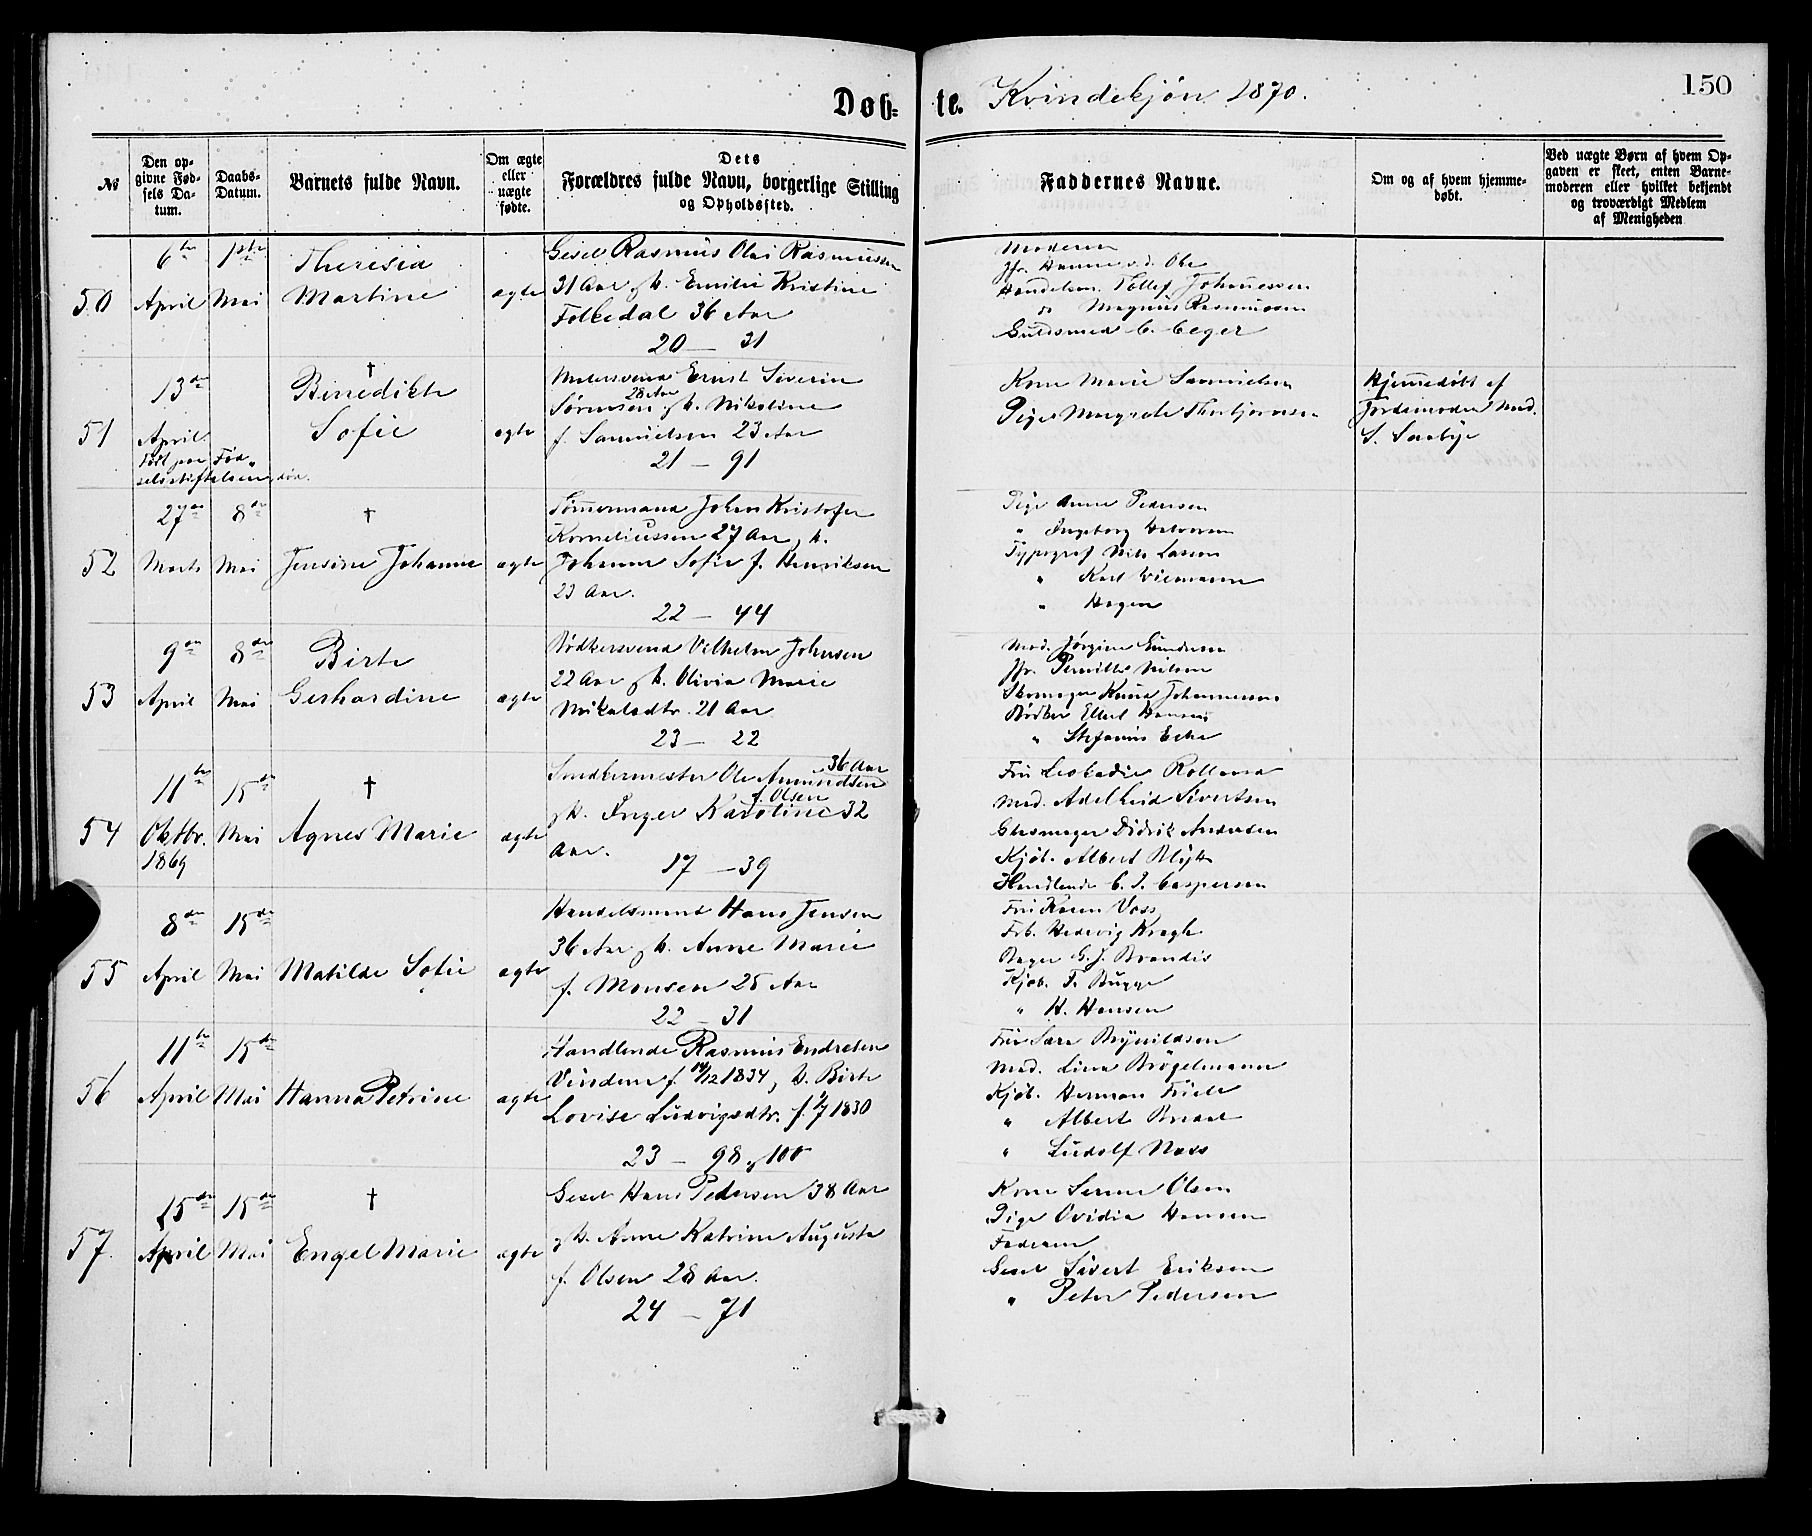 150
Døb- te. Kvindekjøn 1870.
№
Den op-
givne Fød-
sels Da-
tum.
Daabs-
Datum.
Barnets fulde Navn.
Om ægte
eller
uægte
fødte.
Dets
Forældres fulde Navn, borgerlige Stilling
og Opholdssted.
Faddernes Navne.
Om og af hvem hjemme-
døbt.
Ved uægte Børn af hvem Op-
gaven er skeet, enten Barne-
moderen eller hvilket bekjendt
og troværdigt Medlem
af Menigheden
50
6te
April
1ste
Mai
Theresia
Martine
ægte
Gesel Rasmus Olai Rasmussen
31 Aar og h. Emilie Kristine
Folkedal 36 Aar
20 — 31
Moderen
Jfr. Hanne
Handelsm. Tollef Johannesen
" Magnus Rasmussen
Guldsmed C. Ceger
51
13de
April
født paa Fød-
selsstiftelsen
†
Benedikte
Sofie
ægte
Ernst Severin
28 Aar
Sørensen og h. Nikoline
f. Samuelsen 23 Aar
21 — 91
Kone Marie Samuelsen
Pige Margrete Thorbjørnsen
Hjemmedøbt af
Jordemoder Mad.
S. Saabye
52
27de
Marts
8de
Mai
†
Jensine Johanne
ægte
Tømmermand Johan Kristofer
Korneliussen 27 Aar, h.
Johanne Sofie f. Henriksen
23 Aar.
22 — 44
Pige Anne Pedersen
" Ingeborg Halvorsen
Typograf Nils Larsen
" Karl Wiemann
" Hagen
53
9de
April
8de
Mai
Birte
Gerhardine
ægte
Bødkersvend Vilhelm Johnsen
22 Aar og h. Olivia Marie
Nikolaidtr. 21 Aar
23 — 22
Mad. Jørgine Gundersen
Jfr. Pernille Nilsen
Skomager Knud Johannessen
Bødker Ellert Hansen
" Stefanus Eche
54
11te
Oktbr.
1869
15de
Mai
†
Agnes Marie
ægte
36 Aar
Snedkermester Ole Amundsen
f. Olsen
og h. Inger Karoline 32
Aar.
17 — 39
Fru Leokadie Rolland
Mad. Adelheid Sivertsen
Glasmager Didrik Andersen
Kjøb. Albert Blytt
Handlende C. J. Caspersen
55
8de
April
15de
Mai
Matilde Sofie
ægte
Handelsmand Hans Jensen
36 Aar og h. Anne Marie
f. Monsen 25 Aar
22 — 31
Fru Karen Voss
Frk. Hedevig Kragh
Bager G. J. Brandis
Kjøb. F. Bugge
" H. Hansen
56
11te
April
15de
Mai
Hanna Petrine
ægte
Handlende Rasmus Endresen
Vindenes f. 14/12 1834, h. Birte
Lovise Ludvigsdtr. f. 1/7 1830
23 — 98 og 100
Fru Sara Brynildsen
Mad. Lina Brøgelmann
Kjøb. Herman Friele
" Albert Bredal
" Ludolf Nars
57
25de
April
15de
Mai
†
Engel Marie
ægte
Gesel Hans Pedersen 38 Aar
og h. Anne Katrine Auguste
f. Olsen 28 Aar.
24 — 71
Kone Serine Olsen
Pige Ovidia Hansen
Faderen
Gesel Sivert Eriksen
" Peter Pedersen